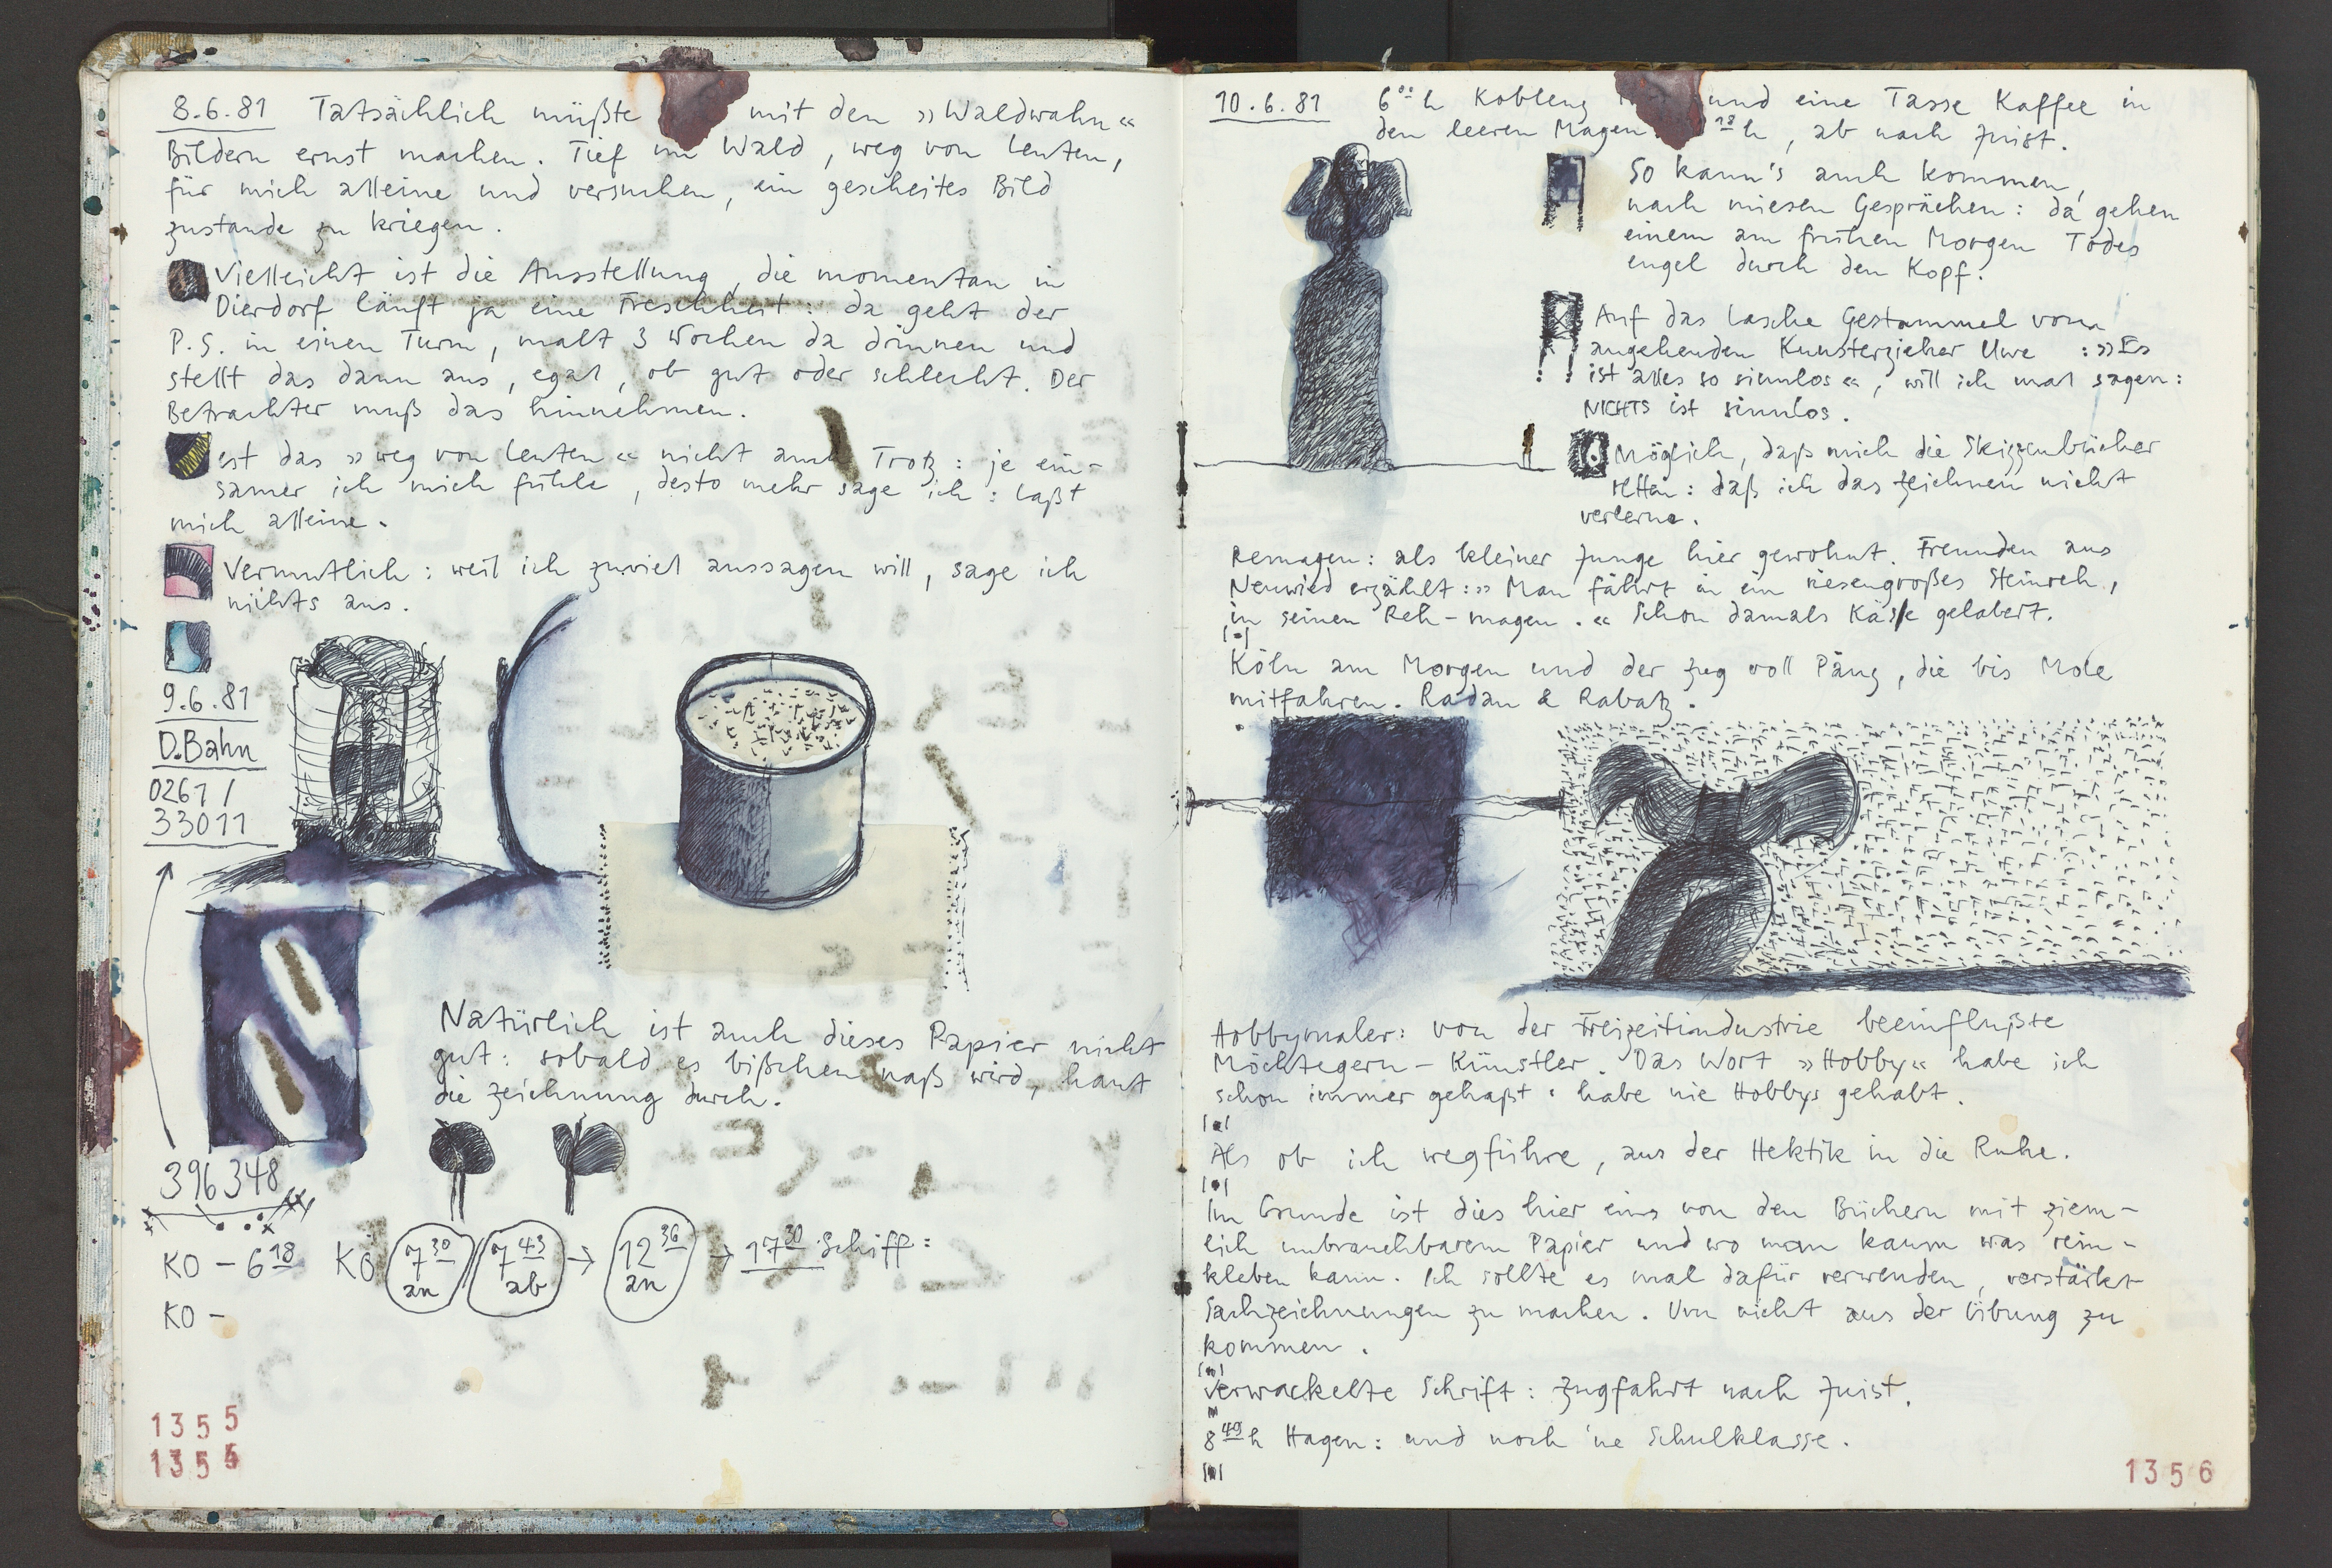 8.6.81 Tatsächlich müßte mit den »Waldwahn«
Bildern ernst machen. Tief im Wald, weg von Leuten,
für mich alleine und versuchen, ein gescheites Bild
zustande zu kriegen.
Vielleicht ist die Ausstellung, die momentan in
Dierdorf läuft ja eine Frechheit: da geht der
P.S. in einen Turm, malt 3 Wochen da drinnen und
stellt das dann aus, egal, ob gut oder schlecht. Der
Betrachter muß das hinnehmen.
ist das »weg von Leuten« nicht auch Trotz: je ein-
samer ich mich fühle, desto mehr sage ich: laßt
mich alleine.
Vermutlich: weil ich zuviel aussagen will, sage ich
nichts aus.
9.6.81
D.Bahn
0261/
33011
Natürlich ist auch dieses Papier nicht
gut: sobald es bißchen naß wird, haut
die Zeichnung durch.
396348
KO - 6 18 KÖ 7 30 an 7 43 ab → 12 36 an → 17 30 Schiff:
KO -
1355
1355
10.6.81 6 00 h Koblenz und eine Tasse Kaffee in
den leeren Magen 18 h, ab nach Juist.
So kann's auch kommen,
nach miesen Gesprächen: da gehen
einem am frühen Morgen Todes
engel durch den Kopf.
Auf das lasche Gestammel vom
angehenden Kunsterzieher Uwe : »Es
ist alles so sinnlos«, will ich mal sagen:
NICHTS ist sinnlos.
Möglich, daß mich die Skizzenbücher
retten: daß ich das Zeichnen nicht
verlerne.
Remagen: als kleiner Junge hier gewohnt. Freunden aus
Neuwied erzählt: »Man fährt in ein riesengroßes Steinreh,
in seinen Reh-magen.« Schon damals Käse gelabert.
Köln am Morgen und der Zug voll Pänz, die bis Mole
mitfahren. Radau & Rabatz.
Hobbymaler: von der Freizeitindustrie beeinflußte
Möchtegern-Künstler. Das Wort »Hobby« habe ich
schon immer gehaßt: habe nie Hobbys gehabt.
Als ob ich wegführe, aus der Hektik in die Ruhe.
Im Grunde ist dies hier eins von den Büchern mit ziem-
lich unbrauchbarem Papier und wo man kaum was rein-
kleben kann. Ich sollte es mal dafür verwenden, verstärkt
Sachzeichnungen zu machen. Um nicht aus der Übung zu
kommen.
Verwackelte Schrift: Zugfahrt nach Juist.
8 49 h Hagen: und noch 'ne Schulklasse.
1356